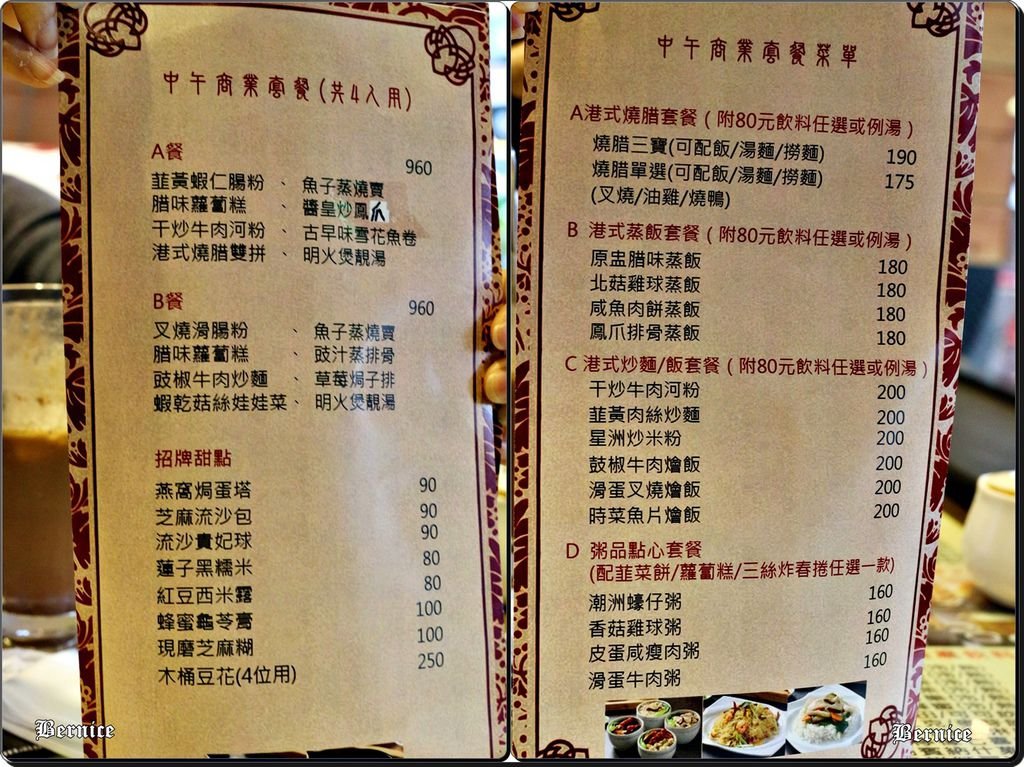 中午商業套餐(共4人用)
A餐 960
韮黃蝦仁腸粉、魚子蒸燒賣
腊味蘿蔔糕、醬皇炒鳳爪
干炒牛肉河粉、古早味雪花魚卷
港式燒腊雙拼、明火煲靚湯
B餐 960
叉燒滑腸粉、魚子蒸燒賣
腊味蘿蔔糕、豉汁蒸排骨
豉椒牛肉炒麵、草莓焗子排
蝦乾菇絲娃娃菜、明火煲靚湯
招牌甜點
燕窩焗蛋塔 90
芝麻流沙包 90
流沙貴妃球 90
蓮子黑糯米 80
紅豆西米露 80
蜂蜜龜苓膏 100
現磨芝麻糊 100
木桶豆花(4位用) 250
Bernice
中午商業套餐菜單
A港式燒腊套餐（附80元飲料任選或例湯）
燒腊三寶(可配飯/湯麵/撈麵) 190
燒腊單選(可配飯/湯麵/撈麵) 175
(叉燒/油雞/燒鴨)
B 港式蒸飯套餐（附80元飲料任選或例湯）
原盅腊味蒸飯 180
北菇雞球蒸飯 180
咸魚肉餅蒸飯 180
鳳爪排骨蒸飯 180
C 港式炒麵/飯套餐（附80元飲料任選或例湯）
干炒牛肉河粉 200
韮黃肉絲炒麵 200
星洲炒米粉 200
鼓椒牛肉燴飯 200
滑蛋叉燒燴飯 200
時菜魚片燴飯 200
D 粥品點心套餐
(配韮菜餅/蘿蔔糕/三絲炸春捲任選一款)
潮洲蠔仔粥 160
香菇雞球粥 160
皮蛋咸瘦肉粥 160
滑蛋牛肉粥 160
Bernice